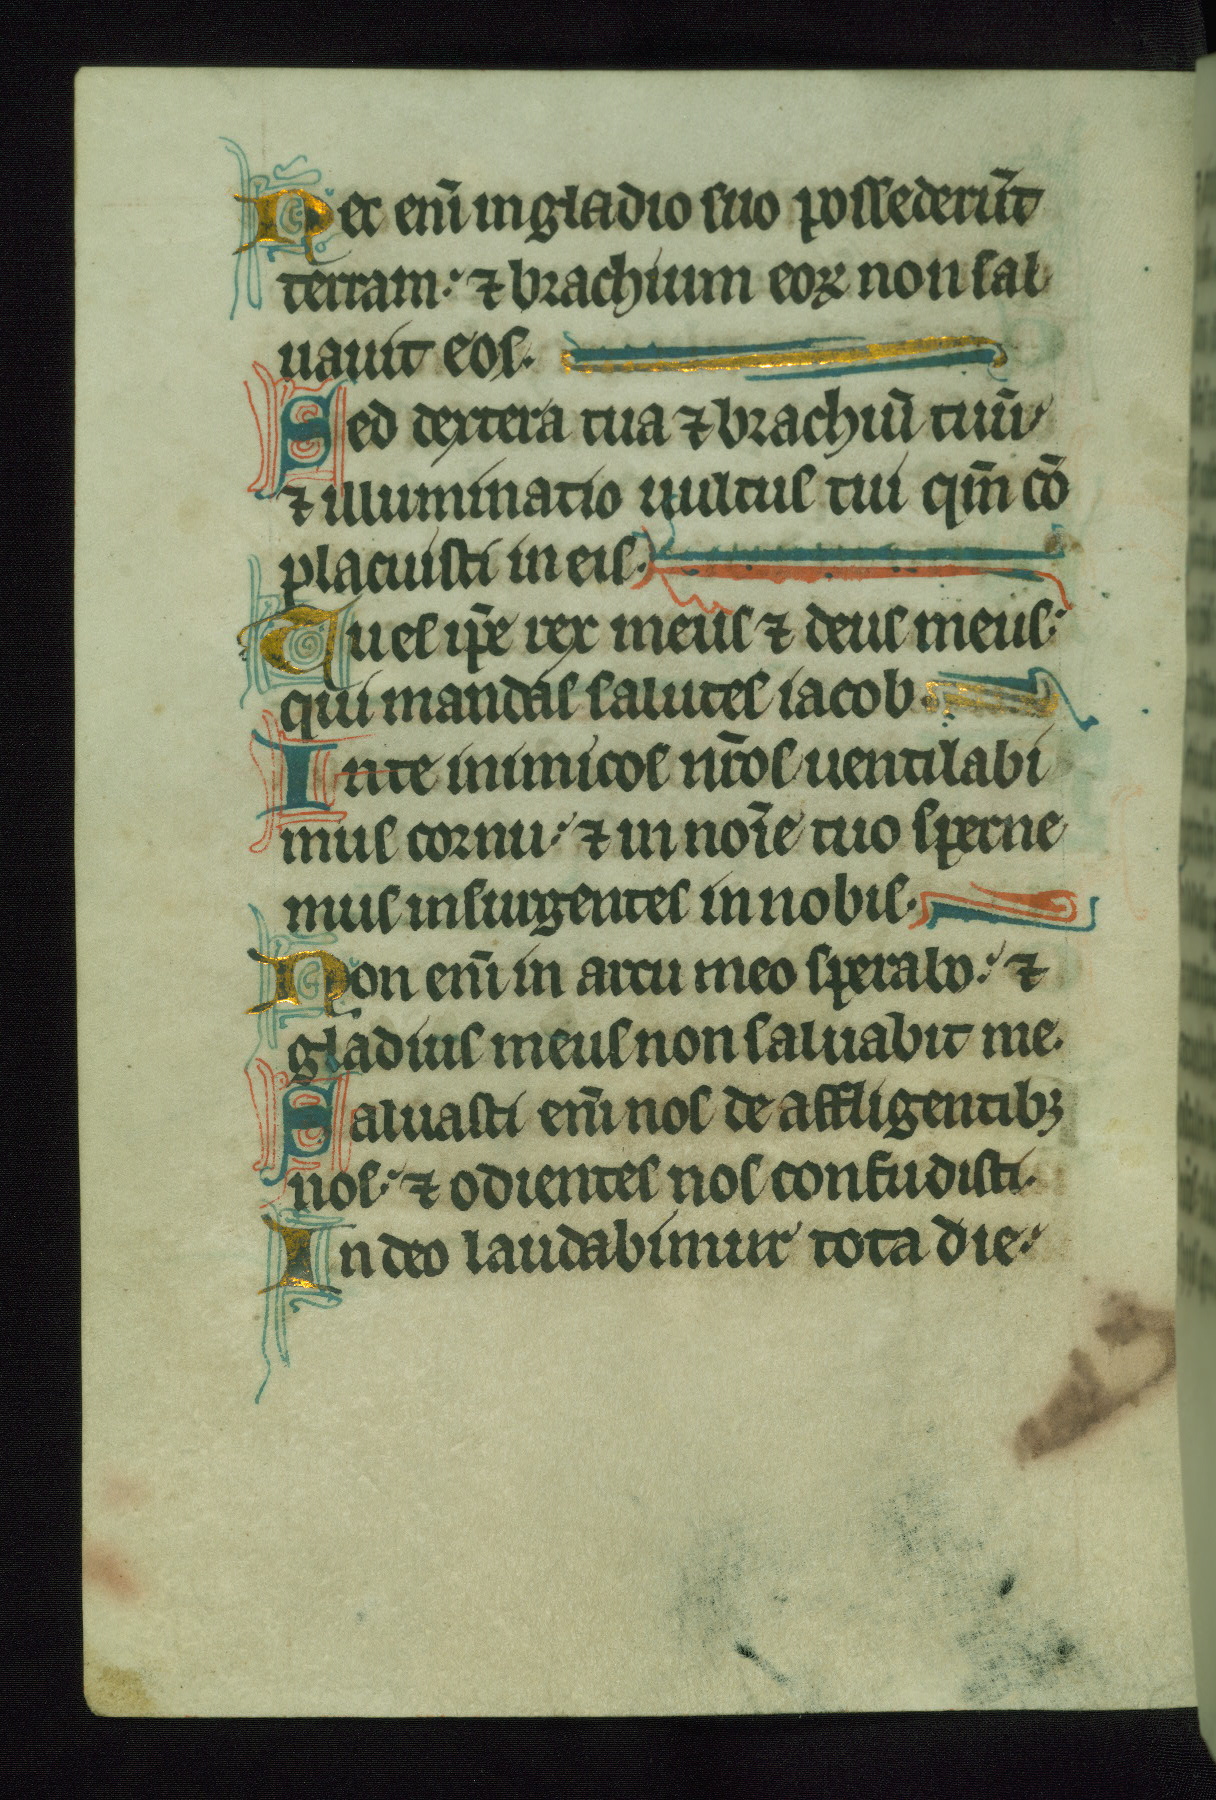 Nec eni̅ in gladio suo possederu̅t
terram: ⁊ brachium eoꝝ non sal
uauit eos.
Sed dextera tua ⁊ brachiu̅ tuu̅
⁊ illuminatio uultus tui qm̅ co̅
placuisti in eis.
Tu es ip̅e rex meus ⁊ deus meus:
qui mandas salutes iacob.
In te inimicos nr̅os uentilabi
mus cornu: ⁊ in noi̅e tuo sperne
mus insurgentes in nobis.
Non eni̅ in arcu meo sperabo: ⁊
gladius meus non saluabit me.
Saluasti eni̅ nos de affligentibꝫ
nos: ⁊ odientes nos confudisti.
In deo laudabimur tota die: